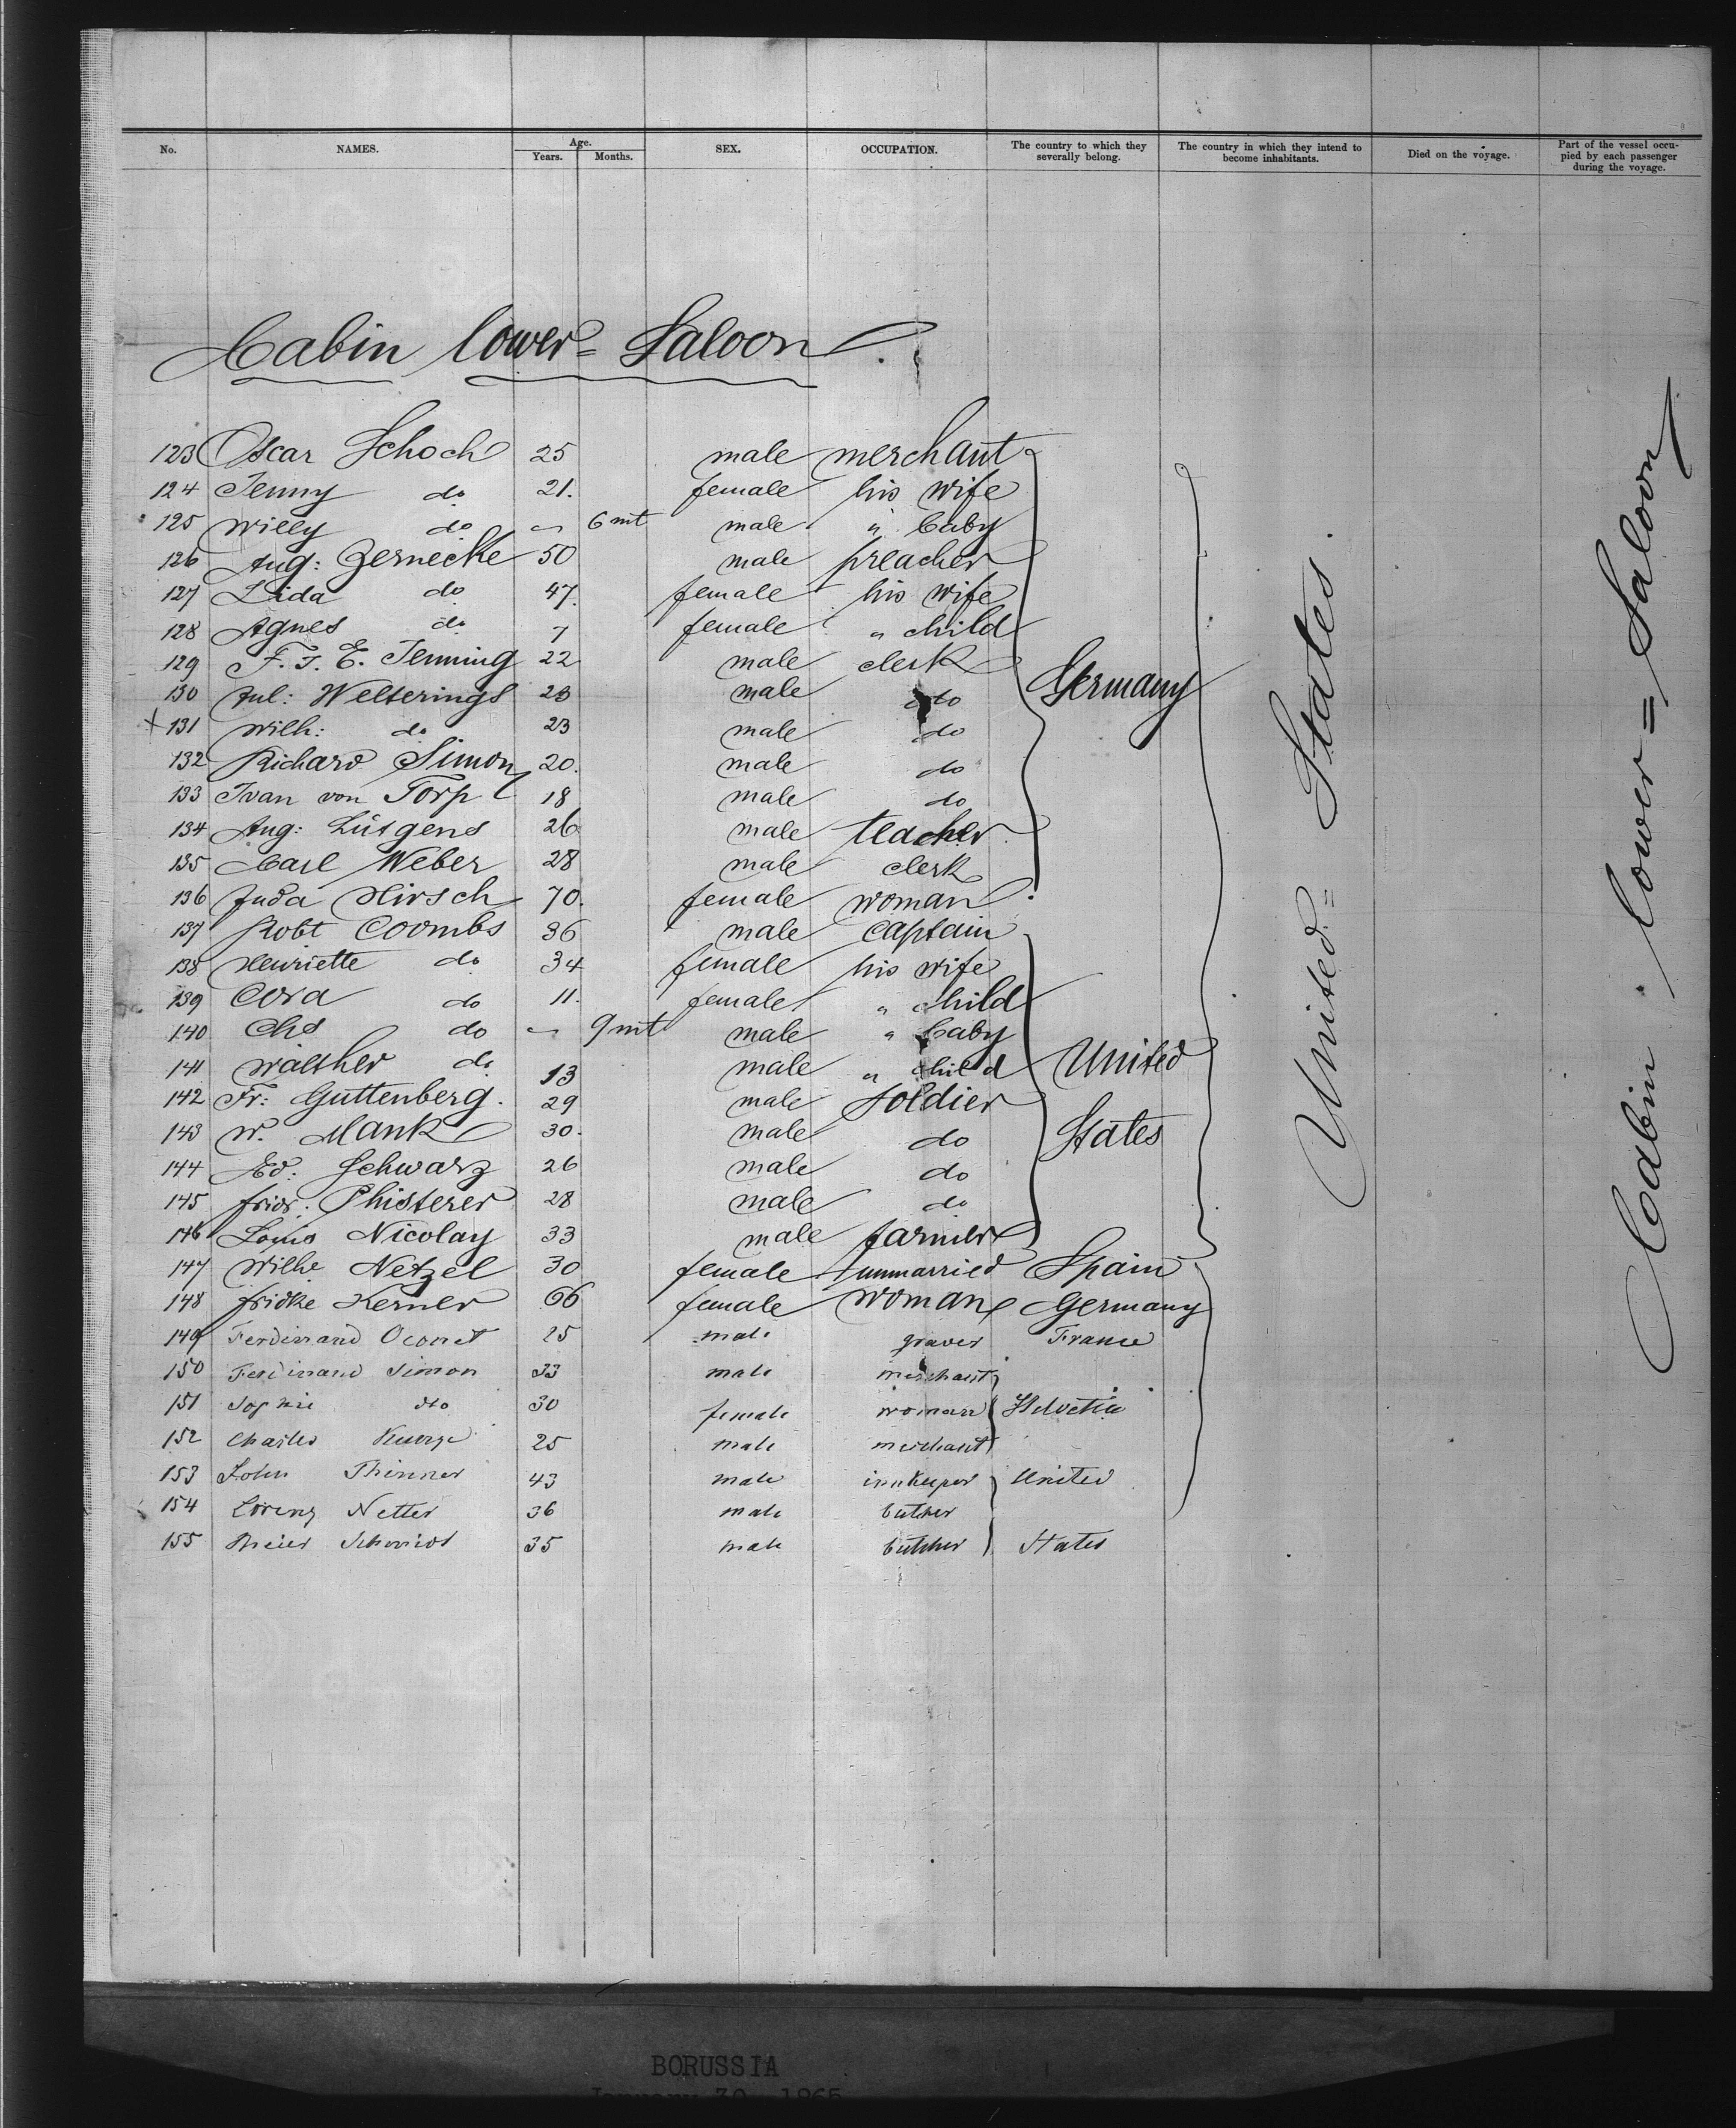 No. NAMES. Age. Years. Months. SEX. OCCUPATION. The country to which they severally belong. The country in which they intend to become inhabitants. Died on the voyage. Part of the vessel occupied by each passenger during the voyage.
Cabin lower = Saloon.
123 Oscar Schoch 25 male merchant
124 Jenny do 21. female his wife
125 Willy do 6 mt male " baby
126 Aug: Zernecke 50 male preacher
127 Lida do 47. female his wife
128 Agnes do 7 female " child
129 F. J. E. Jenning 22 male clerk
130 Jul: Welterings male do Germany
x 131 Wilh: do 23 male do
132 Richard Simon 20. male do
133 Ivan von Torp 18 male do
134 Aug: Lütgens 26 male teacher
135 Carl Weber 28 male clerk
136 Juda Hirsch 70. female woman
137 Robt Coombs 36 male captain
138 Henriette do 34 female his wife
139 Cora do 11. female " child
140 Chs do 9 mt male " baby
141 Walther do 13 male " child United
142 Fr: Guttenberg. 29 male soldier
143 W. Mank 30. male do States
144 Ed: Schwarz 26 male do
145 fridr: Phisterer 28 male do
146 Louis Nicolay 33 male farmer
147 Wilhe Netzel 30 female unmarried Spain
148 fridke Kerner 66 female woman Germany
149 Ferdinand 25 male graver France
150 Ferdinand Simon 33 male merchant
151 Sophie do 30 female woman Helvetia
152 Charles 25 male merchant
153 John Thinner 43 male innkeeper United
154 Lorenz Netter 36 male butcher
155 Schmidt 35 male butcher States
United = States.
Cabin lower = Saloon
BORUSSIA
January 30, 1865